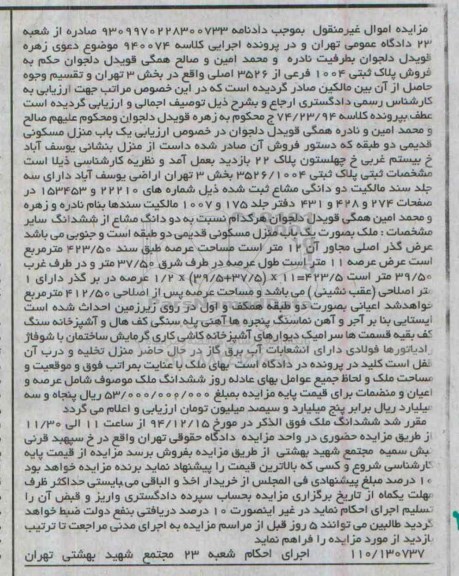 مزایده اموال غیرمنقول بموجب دادنامه ۹۳۰۹۹۷۰۲۲۸۳۰۰۷۳۳ صادره از شعبه
۲۳ دادگاه عمومی تهران و در پرونده اجرایی کلاسه ۹۴۰۰۷۴ موضوع دعوی زهره
قویدل دلجوان بطرفیت نادره و محمد امین و صالح همگی قویدل دلجوان حکم به
فروش پلاک ثبتی ۱۰۰۴ فرعی از ۳۵۲۶ اصلی واقع در بخش ۳ تهران و تقسیم وجوه
حاصل از آن بین مالکین صادر گردیده است که در این خصوص مراتب جهت ارزیابی به
کارشناس رسمی دادگستری ارجاع و بشرح ذیل توصیف اجمالی و ارزیابی گردیده است
عطف بپرونده کلاسه ۷۴/۲۳/۹۴ ج محکوم به زهره قویدل دلجوان ومحکوم علیهم صالح
و محمد امین و نادره همگی قویدل دلجوان در خصوص ارزیابی یک باب منزل مسکونی
قدیمی دو طبقه که دستور فروش آن صادر شده داست از منزل بنشانی یوسف آباد
خ بیستم غربی خ چهلستون پلاک ۲۲ بازدید بعمل آمد و نظریه کارشناسی ذیلا است
مشخصات ثبتی پلاک ثبتی ۳۵۲۶/۱۰۰۴ بخش ۳ تهران اراضی یوسف آباد دارای سه
جلد سند مالکیت دو دانگی مشاع ثبت شده ذیل شماره های ۲۲۲۱۰ و ۱۵۳۴۵۳ در
صفحات ۲۷۴ و ۴۲۸ و ۴۳۱ دفتر جلد ۱۷۵ و ۱۰۰۷ مالکیت سندها بنام نادره و زهره
و محمد امین همگی قویدل دلجوان هرکدام نسبت به دو دانگ مشاع از ششدانگ سایر
مشخصات : ملک بصورت یک باب منزل مسکونی قدیمی دو طبقه است و جنوبی می باشد
عرض گذر اصلی مجاور آن ۱۲ متر است مساحت عرصه طبق سند ۴۲۳/۵۰ مترمربع
است عرض عرصه ۱۱ متر است طول عرصه در طرف شرق ۳۷/۵۰ متر و در طرف غرب
۳۹/۵۰ متر است ۴۲۳/۵=۱۱ x (۳۹/۵+۳۷/۵) x ۱/۲ عرصه در بر گذر دارای ۱
متر اصلاحی (عقب نشینی) می باشد و مساحت عرصه پس از اصلاحی ۴۱۲/۵۰ مترمربع
خواهدشد اعیانی بصورت دو طبقه همکف و اول در روی زیرزمین احداث شده است
ایستایی بنا بر آجر و آهن نماسنگ پنجره ها آهنی پله سنگی کف هال و آشپزخانه سنگ
کف بقیه قسمت ها سرامیک دیوارهای آشپزخانه کاشی کاری گرمایش ساختمان با شوفاژ
رادیاتورها فولادی دارای انشعابات آب برق گاز در حال حاضر منزل تخلیه و درب آن
قفل است کلید در پرونده در دادگاه است بهای ملک با عنایت بمراتب فوق و موقعیت و
مساحت ملک و لحاظ جمیع عوامل بهای عادله روز ششدانگ ملک موصوف شامل عرصه و
اعیان و منضمات برای قیمت پایه مزایده بمبلغ ۵۳/۰۰۰/۰۰۰/۰۰۰ ریال پنجاه و سه
میلیارد ریال برابر پنج میلیارد و سیصد میلیون تومان ارزیابی و اعلام می گردد
مقرر شد ششدانگ ملک فوق الذکر در مورخ ۹۴/۱۲/۱۵ از ساعت ۱۱ الی ۱۱/۳۰
از طریق مزایده حضوری در واحد مزایده دادگاه حقوقی تهران واقع در خ سپهبد قرنی
نبش سمیه مجتمع شهید بهشتی از طریق مزایده بفروش برسد مزایده از قیمت پایه
کارشناسی شروع و کسی که بالاترین قیمت را پیشنهاد نماید برنده مزایده خواهد بود
۱۰ درصد مبلغ پیشنهادی فی المجلس از خریدار اخذ و الباقی می‌بایستی حداکثر ظرف
مهلت یکماه از تاریخ برگزاری مزایده بحساب سپرده دادگستری واریز و قبض آن را
تسلیم اجرای احکام نماید در غیر اینصورت ۱۰ درصد دریافتی بنفع دولت ضبط خواهد
گردید طالبین می توانند ۵ روز قبل از مراسم مزایده به اجرای مدنی مراجعت تا ترتیب
بازدید از مورد مزایده را فراهم نماید
۱۱۰/۱۳۰۷۳۷ اجرای احکام شعبه ۲۳ مجتمع شهید بهشتی تهران